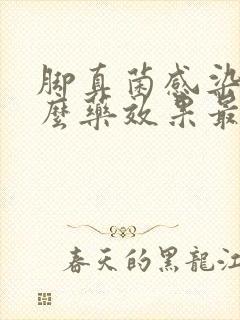 脚真菌感染
麼藥效果最
春天的黑龍江